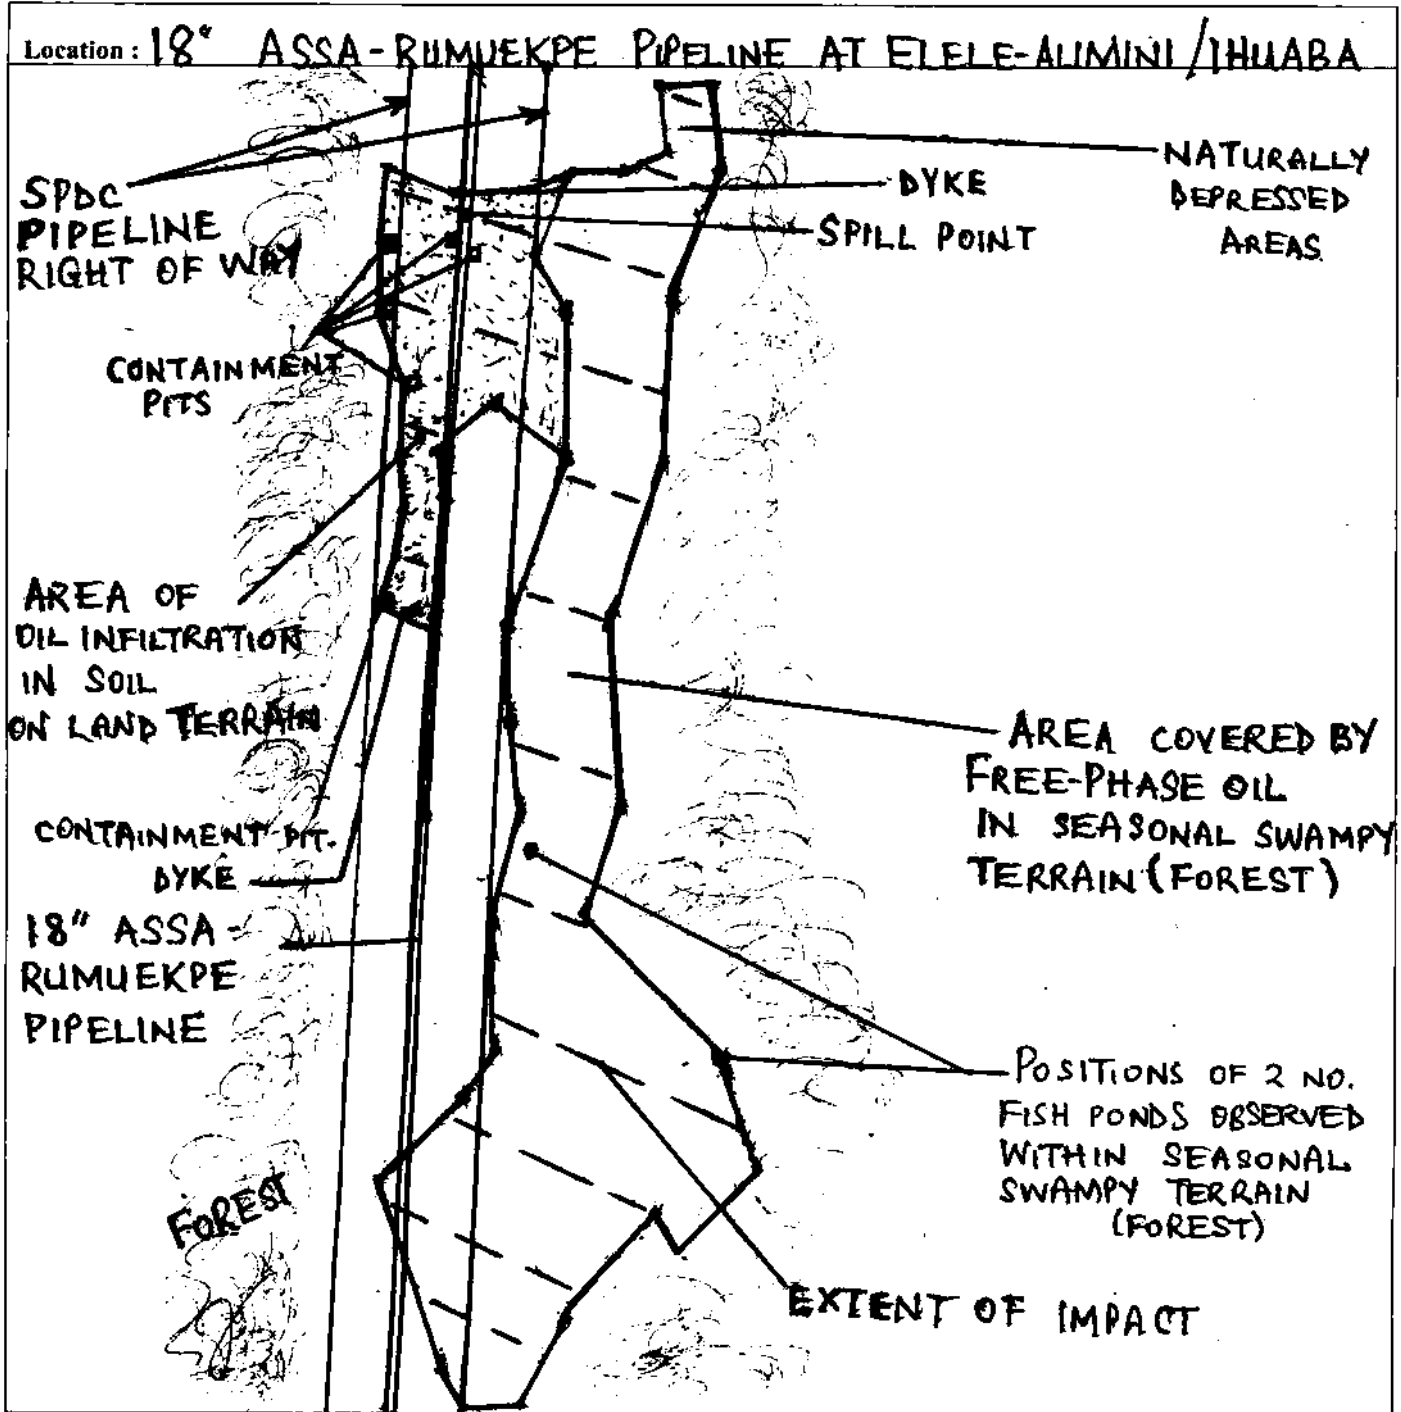 Location: 18" ASSA-RUMUEKPE PIPELINE AT ELELE-ALIMINI/IHUABA
NATURALLY
DEPRESSED
AREAS
DYKE
SPILL POINT
SPDC
PIPELINE
RIGHT OF WAY
CONTAINMENT
PITS
AREA OF
OIL INFILTRATION
IN SOIL
ON LAND TERRAIN
AREA COVERED BY
FREE-PHASE OIL
IN SEASONAL SWAMPY
TERRAIN (FOREST)
CONTAINMENT PIT.
DYKE
18" ASSA-
RUMUEKPE
PIPELINE
POSITIONS OF 2 NO.
FISH PONDS OBSERVED
WITHIN SEASONAL
SWAMPY TERRAIN
(FOREST)
FOREST
EXTENT OF IMPACT